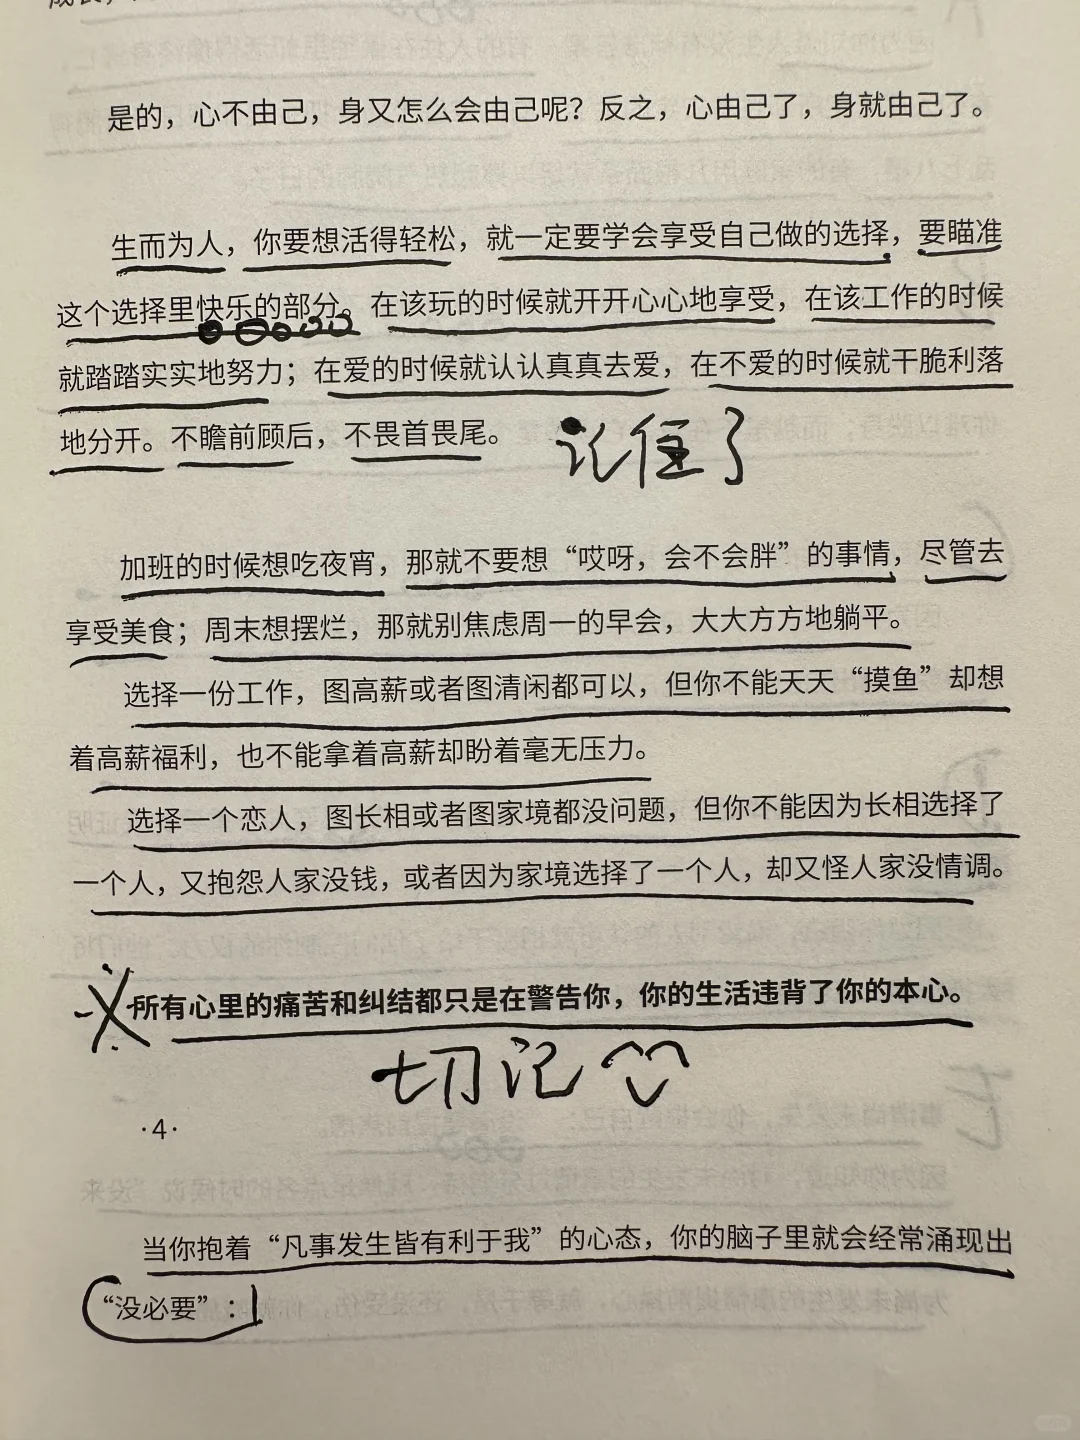 是的，心不由己，身又怎么会由己呢？反之，心由己了，身就由己了。
生而为人，你要想活得轻松，就一定要学会享受自己做的选择，要瞄准
这个选择里快乐的部分。在该玩的时候就开开心心地享受，在该工作的时候
就踏踏实实地努力；在爱的时候就认认真真去爱，在不爱的时候就干脆利落
地分开。不瞻前顾后，不畏首畏尾。
记住了
加班的时候想吃夜宵，那就不要想“哎呀，会不会胖”的事情，尽管去
享受美食；周末想摆烂，那就别焦虑周一的早会，大大方方地躺平。
选择一份工作，图高薪或者图清闲都可以，但你不能天天“摸鱼”却想
着高薪福利，也不能拿着高薪却盼着毫无压力。
选择一个恋人，图长相或者图家境都没问题，但你不能因为长相选择了
一个人，又抱怨人家没钱，或者因为家境选择了一个人，却又怪人家没情调。
所有心里的痛苦和纠结都只是在警告你，你的生活违背了你的本心。
切记
·4·
当你抱着“凡事发生皆有利于我”的心态，你的脑子里就会经常涌现出
“没必要”：